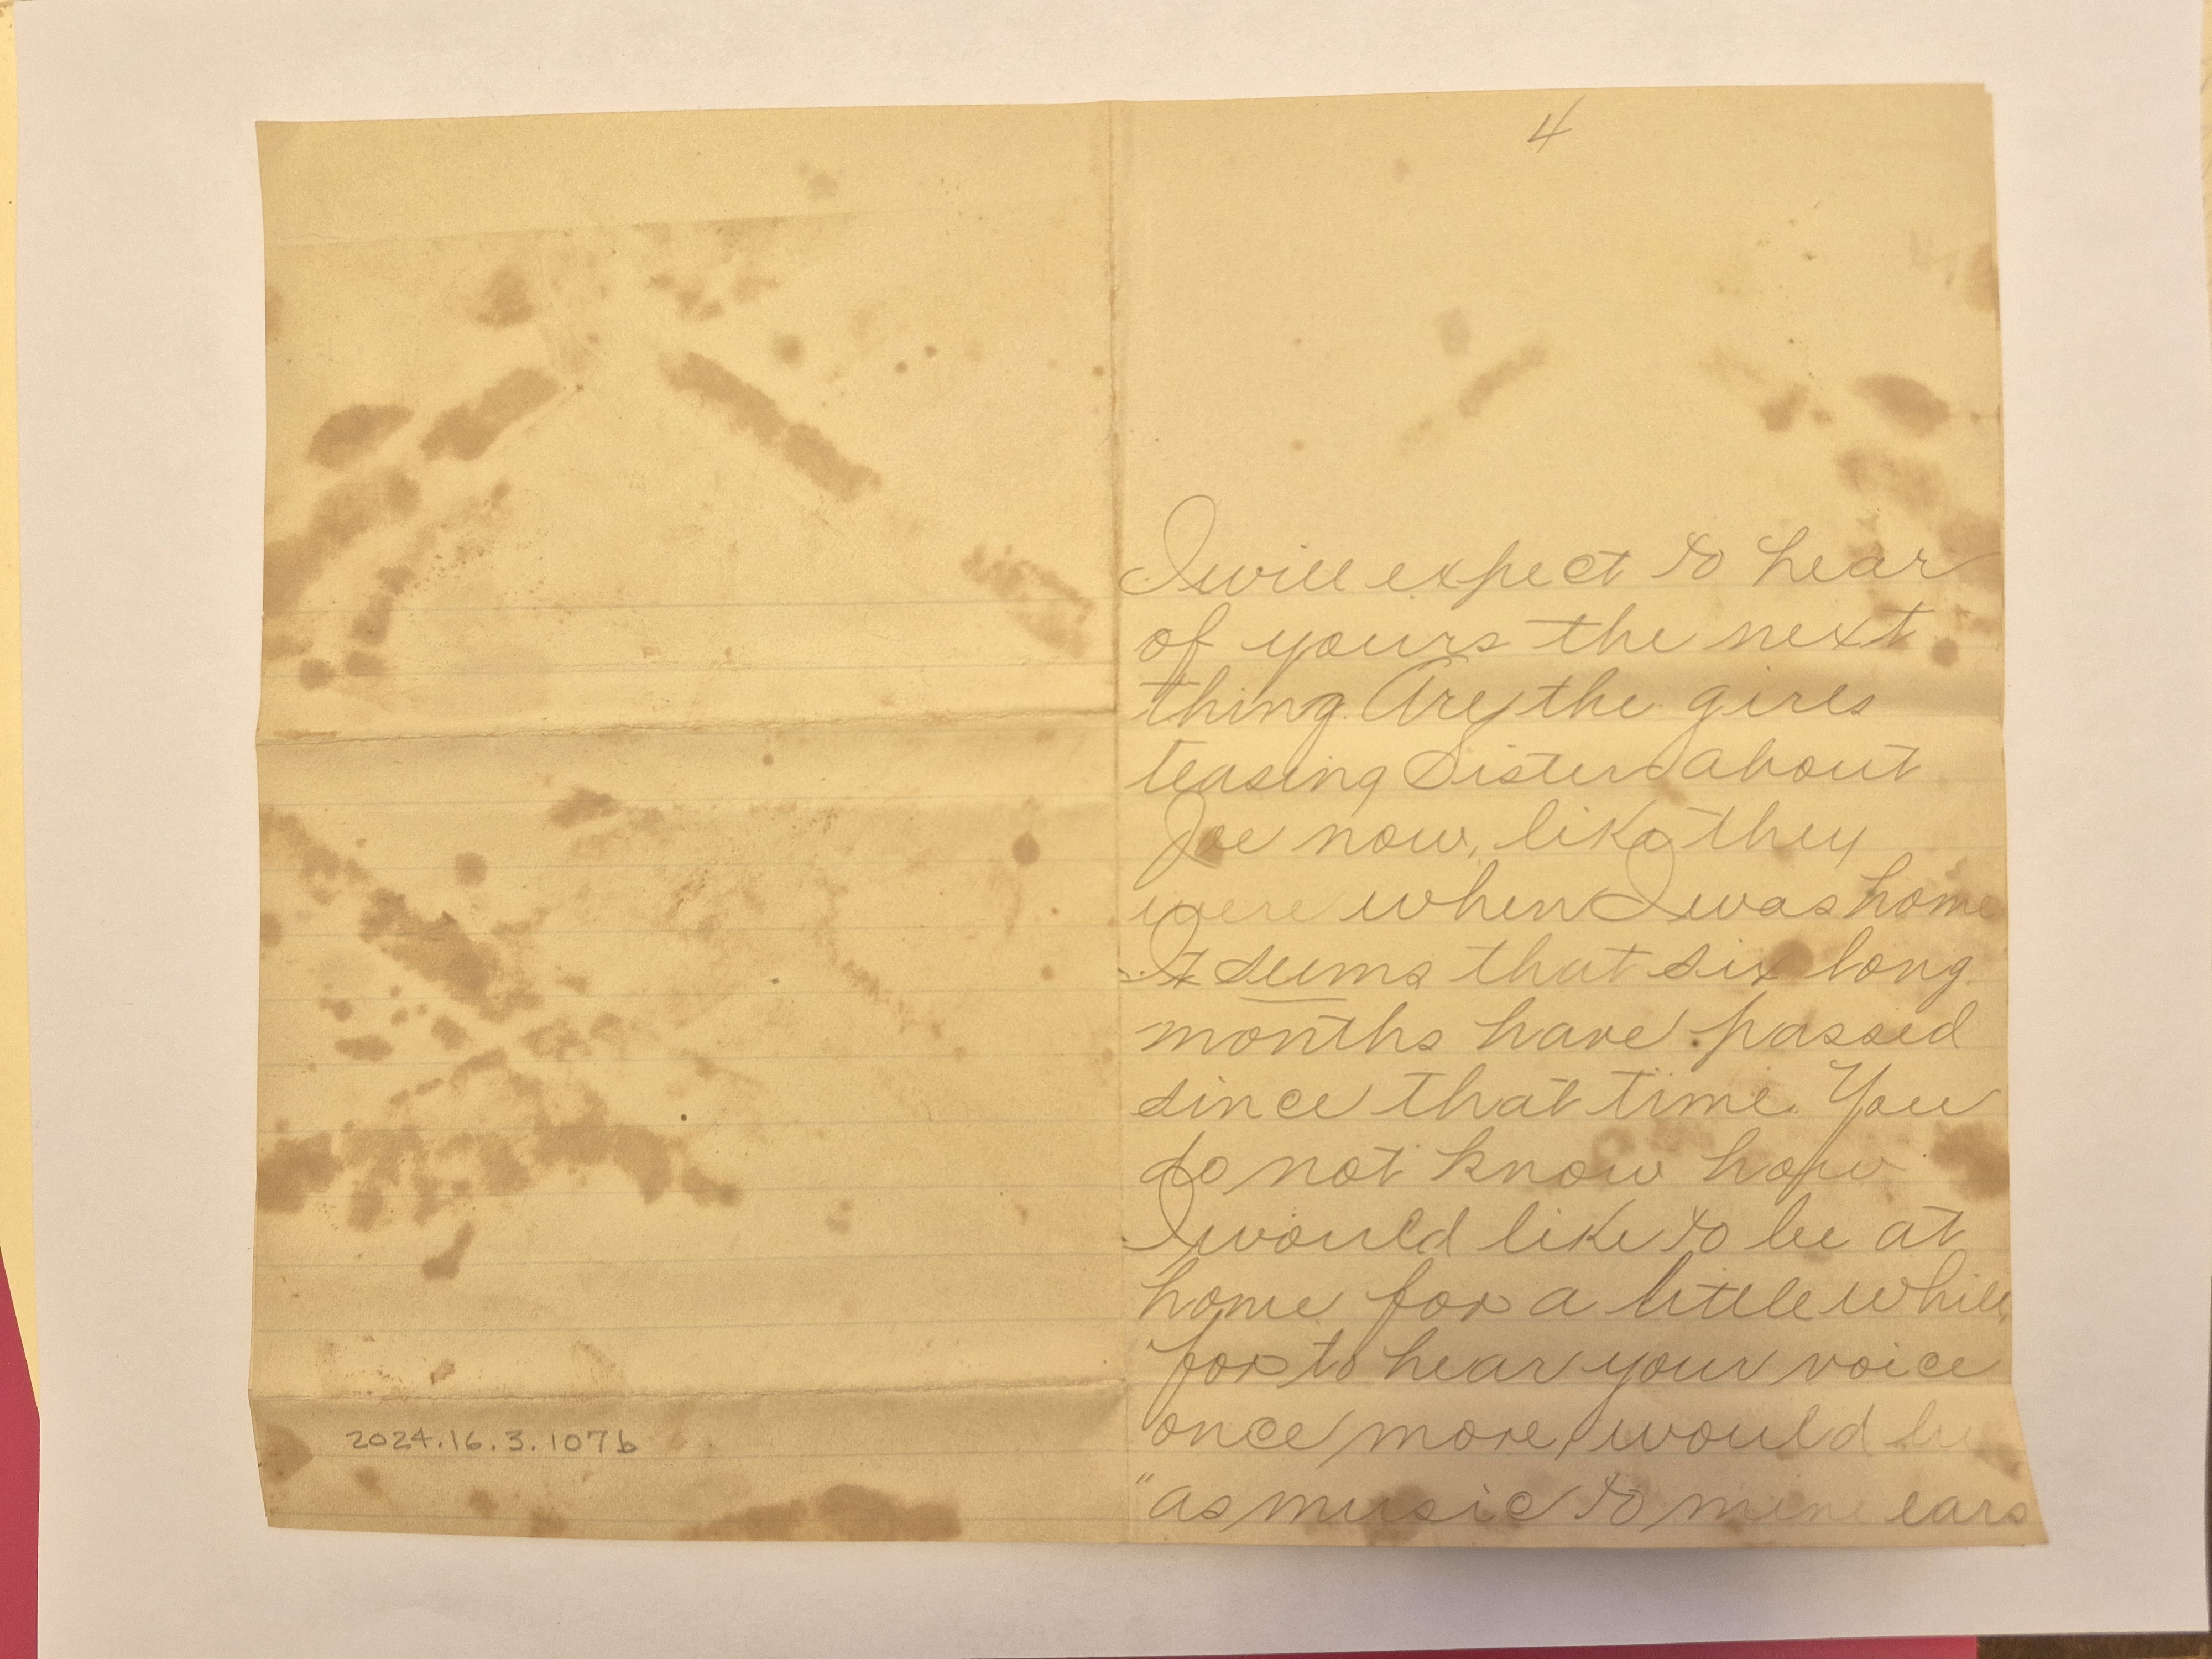 4
I will expect to hear
of yours the next
thing. Are the girls
teasing Sister about
Joe now, like they
were when I was home
It seems that six long
months have passed
since that time. You
do not know how
I would like to be at
home for a little while,
for to hear your voice
once more, would be
"as music to mine ears
2024.16.3.107b